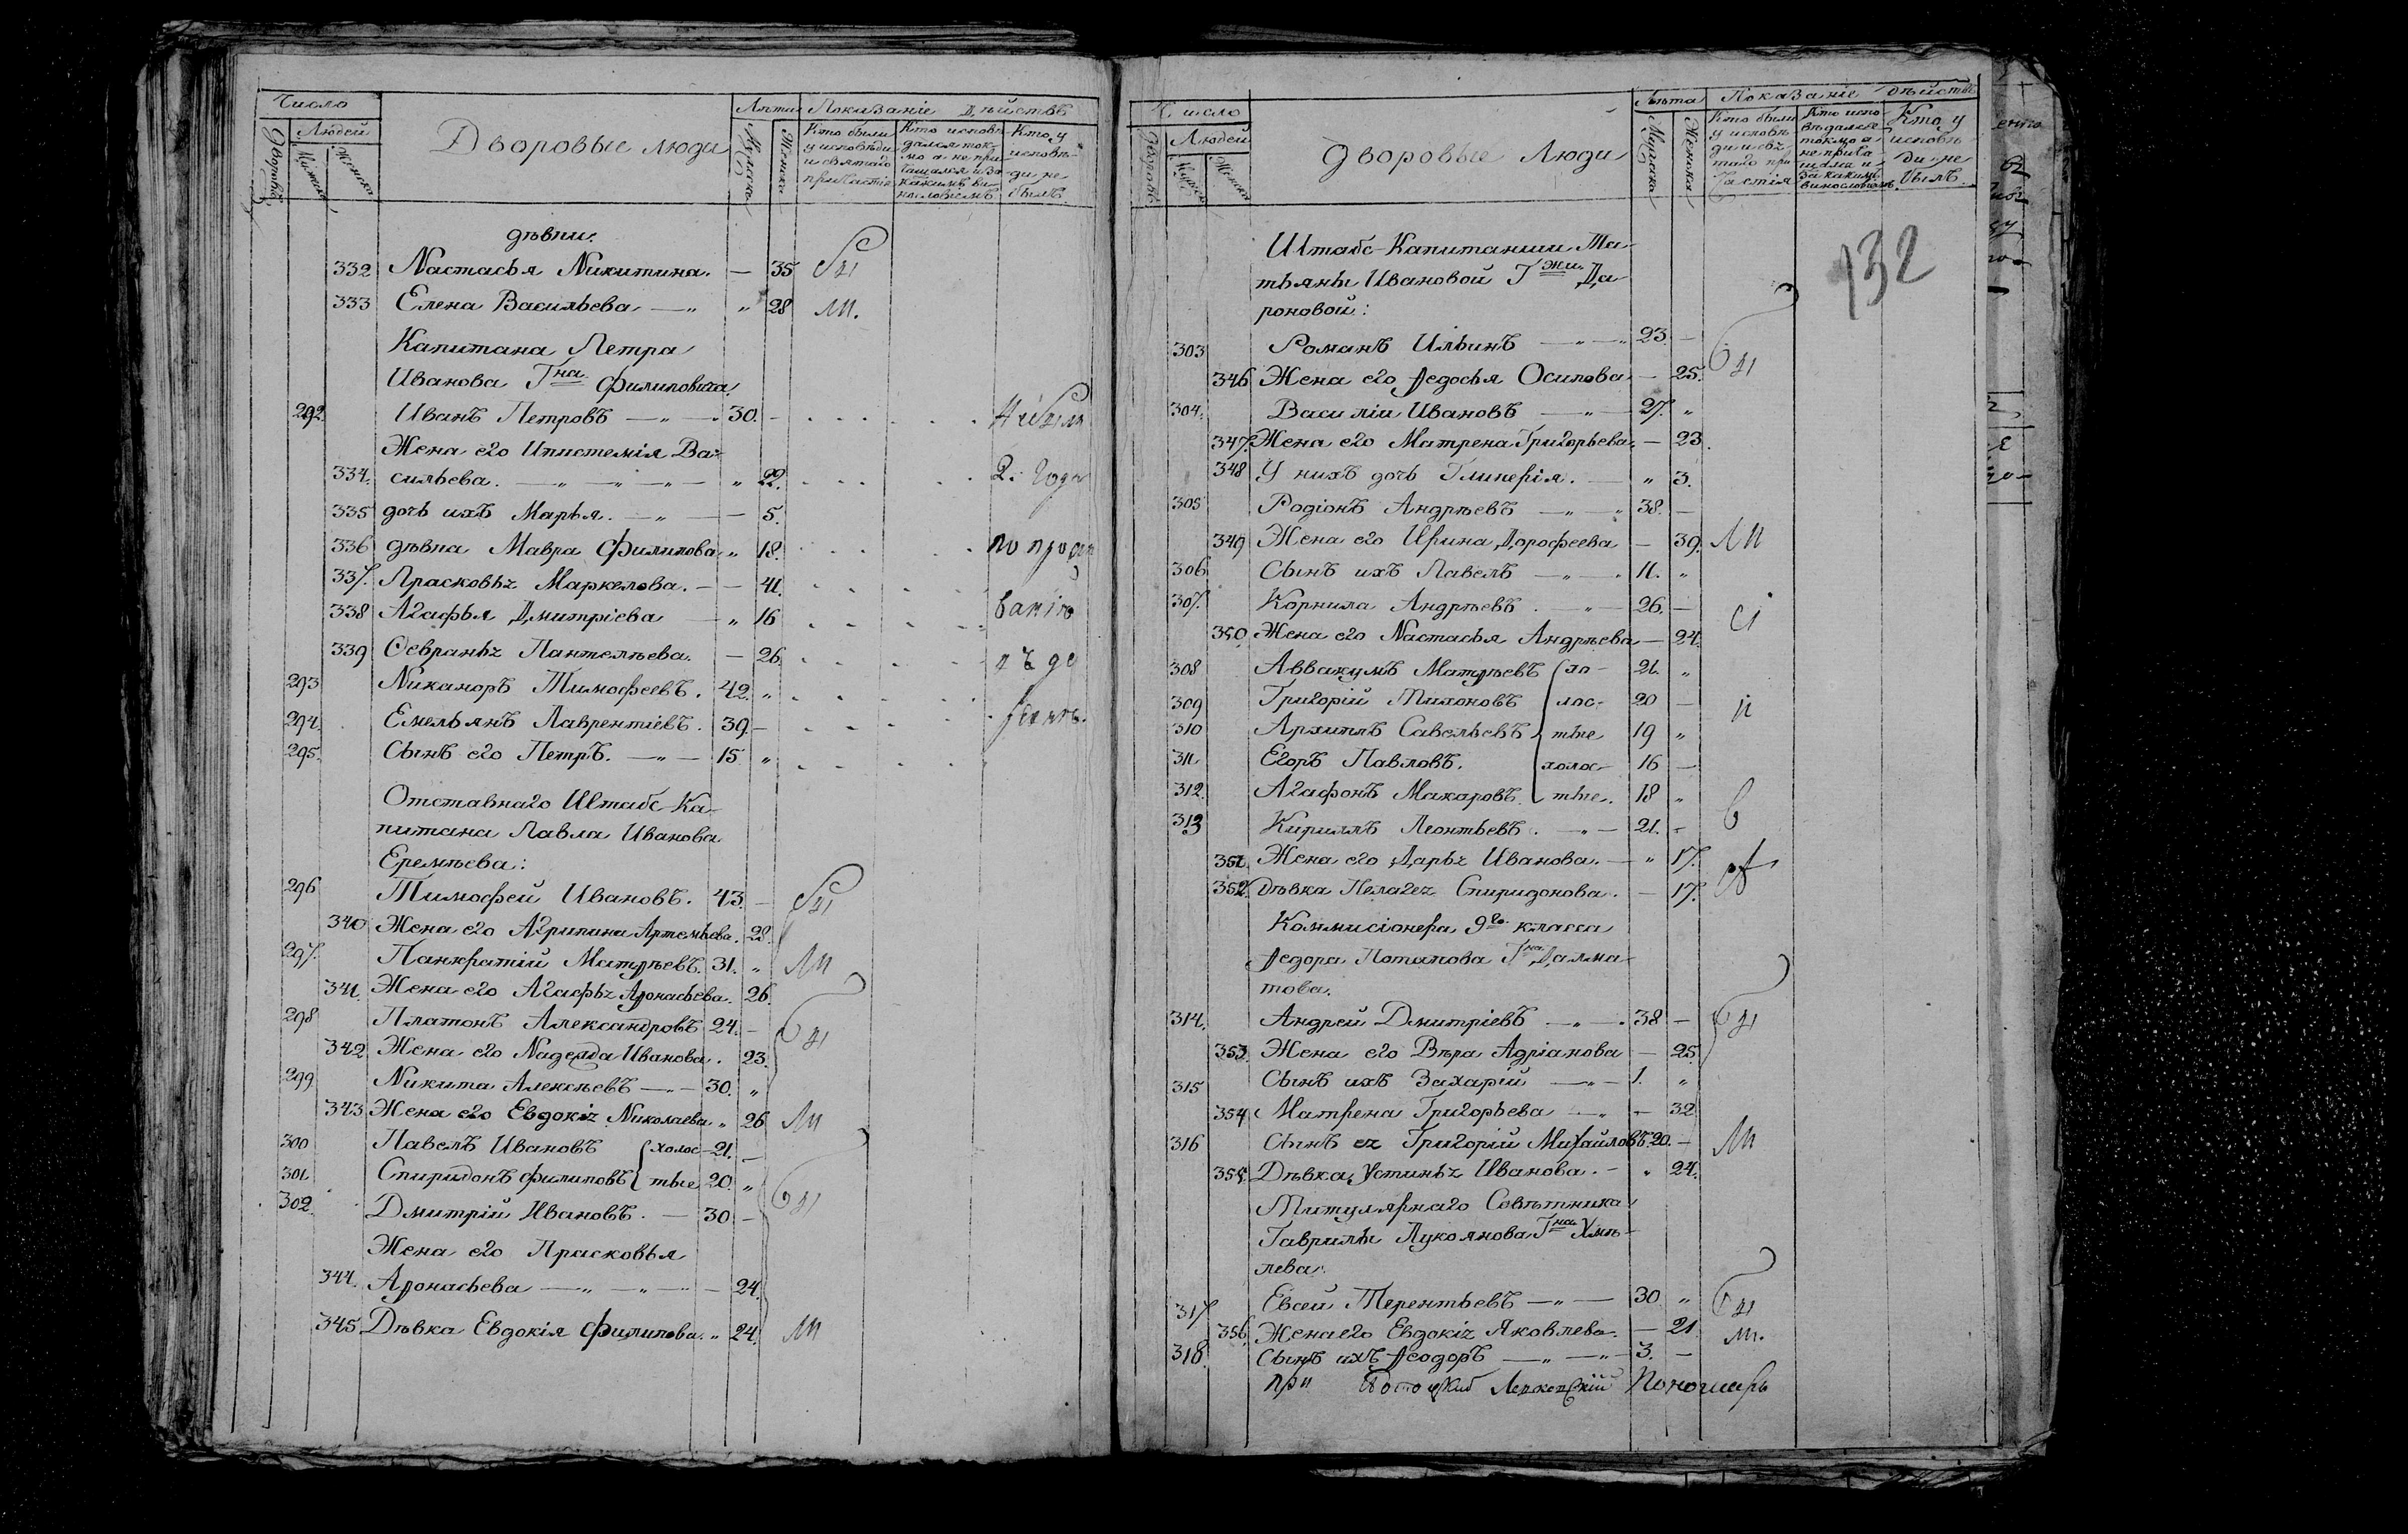 Число
Людей
Дворовъ
Мужеска
Женска
Дворовые люди
Лѣта
Мужеска
Женска
Показаніе дѣйствъ
Кто были у исповѣди и святаго причастія
Кто исповѣдался токмо а не причащался и за какимъ винословіемъ
Кто у исповѣди не былъ
дѣвки.
332 Настасья Никитина. — 35 бы
333 Елена Васильева — „ „ 28 ли.
Капитана Петра
Иванова Гна Филиповича.
292. Иванъ Петровъ — „ — 30. — небыли
Жена его Ипистемія Ва-
334. сильева. — „ — „ — „ — „ 22. 2. года
335 дочь ихъ Марья. — „ — — 5.
336 дѣвка Мавра Филипова „ 18. по прожи
337. Прасковья Маркелова. — — 41.
338 Агафья Дмитріева — „ 16 ванію
339 Февранья Пантелѣева. — 26.
293 Никаноръ Тимофеевъ. 42. „
294. Емельянъ Лаврентіевъ. 39. —
295. Сынъ его Петръ. — „ — 15 „
Отставнаго Штабс-Ка-
питана Павла Иванова
Еремѣева:
296 Тимофей Ивановъ. 43. — бы
340 Жена его Агрипина Артемьева. 28.
297. Панкратій Матѳѣевъ. 31. „ ли
341. Жена его Агафья Аѳонасьева. 26.
298 Платонъ Александровъ 24. — бы
342 Жена его Надежда Иванова. 23.
299 Никита Алексѣевъ — „ — 30. „
343 Жена его Евдокія Николаева „ 26 ли
300 Павелъ Ивановъ холос- 21. —
301 Спиридонъ Филиповъ тые 20. „ бы
302. Дмитрій Ивановъ. — 30 —
Жена его Прасковья
344. Аѳонасьева — „ — „ — „ — 24.
345 Дѣвка Евдокія Филипова. „ 24. ли
Число
Людей
Дворовъ
Мужеска
Женска
Дворовые Люди
Лѣта
Мужеска
Женска
Показаніе дѣйствъ
Кто были у исповѣди и святаго причастія
Кто исповѣдался токмо а не причащался и за какимъ винословіемъ
Кто у исповѣди не былъ
132
Штабс-Капитанши Та-
тьяны Ивановой Гжи Да-
роновой:
303 Романъ Ильинъ — „ — 23. —
346 Жена его Ѳедосья Осипова — 25. бы
304. Василіи Ивановъ — „ — 27. „
347. Жена его Матрена Григорьева. — 23.
348 У нихъ дочь Гликерія. — „ 3.
305 Родіонъ Андрѣевъ — „ — 38. —
349 Жена его Ирина Дорофеева — 39. ли
306 Сынъ ихъ Павелъ — „ — 11. „
307. Корнила Андрѣевъ. — „ — 26. —
350 Жена его Настасья Андрѣева — 24.
308 Аввакумъ Матѳѣевъ хо- 21. „
309 Григорій Тихоновъ лос- 20 —
310 Архипъ Савельевъ тые 19 „
311. Егоръ Павловъ. холос- 16 —
312. Агафонъ Макаровъ. тые. 18 „
313 Кириллъ Леонтьевъ. — „ — 21. —
351. Жена его Дарья Иванова. — „ 17.
352. Дѣвка Пелагея Спиридонова. — 17.
Коммисіонера 9го класса
Ѳедора Потапова Гна Далма-
това.
314. Андрей Дмитріевъ — „ — 38 — бы
353 Жена его Вѣра Адріанова — 25
315 Сынъ ихъ Захарій — „ — 1. „
354 Матрена Григорьева — „ — 32
316 Сынъ ея Григорій Михайловъ 20. — ли
355. Дѣвка Устинья Иванова. — „ 24.
Титулярнаго Совѣтника
Гаврилы Лукоянова Гна Хмѣ-
лева.
317. Евсей Терентьевъ — „ — 30. „ бы
356. Жена его Евдокія Яковлева. — 21. ли.
318. Сынъ ихъ Ѳеодоръ — „ — „ 3. —
при Пономарь